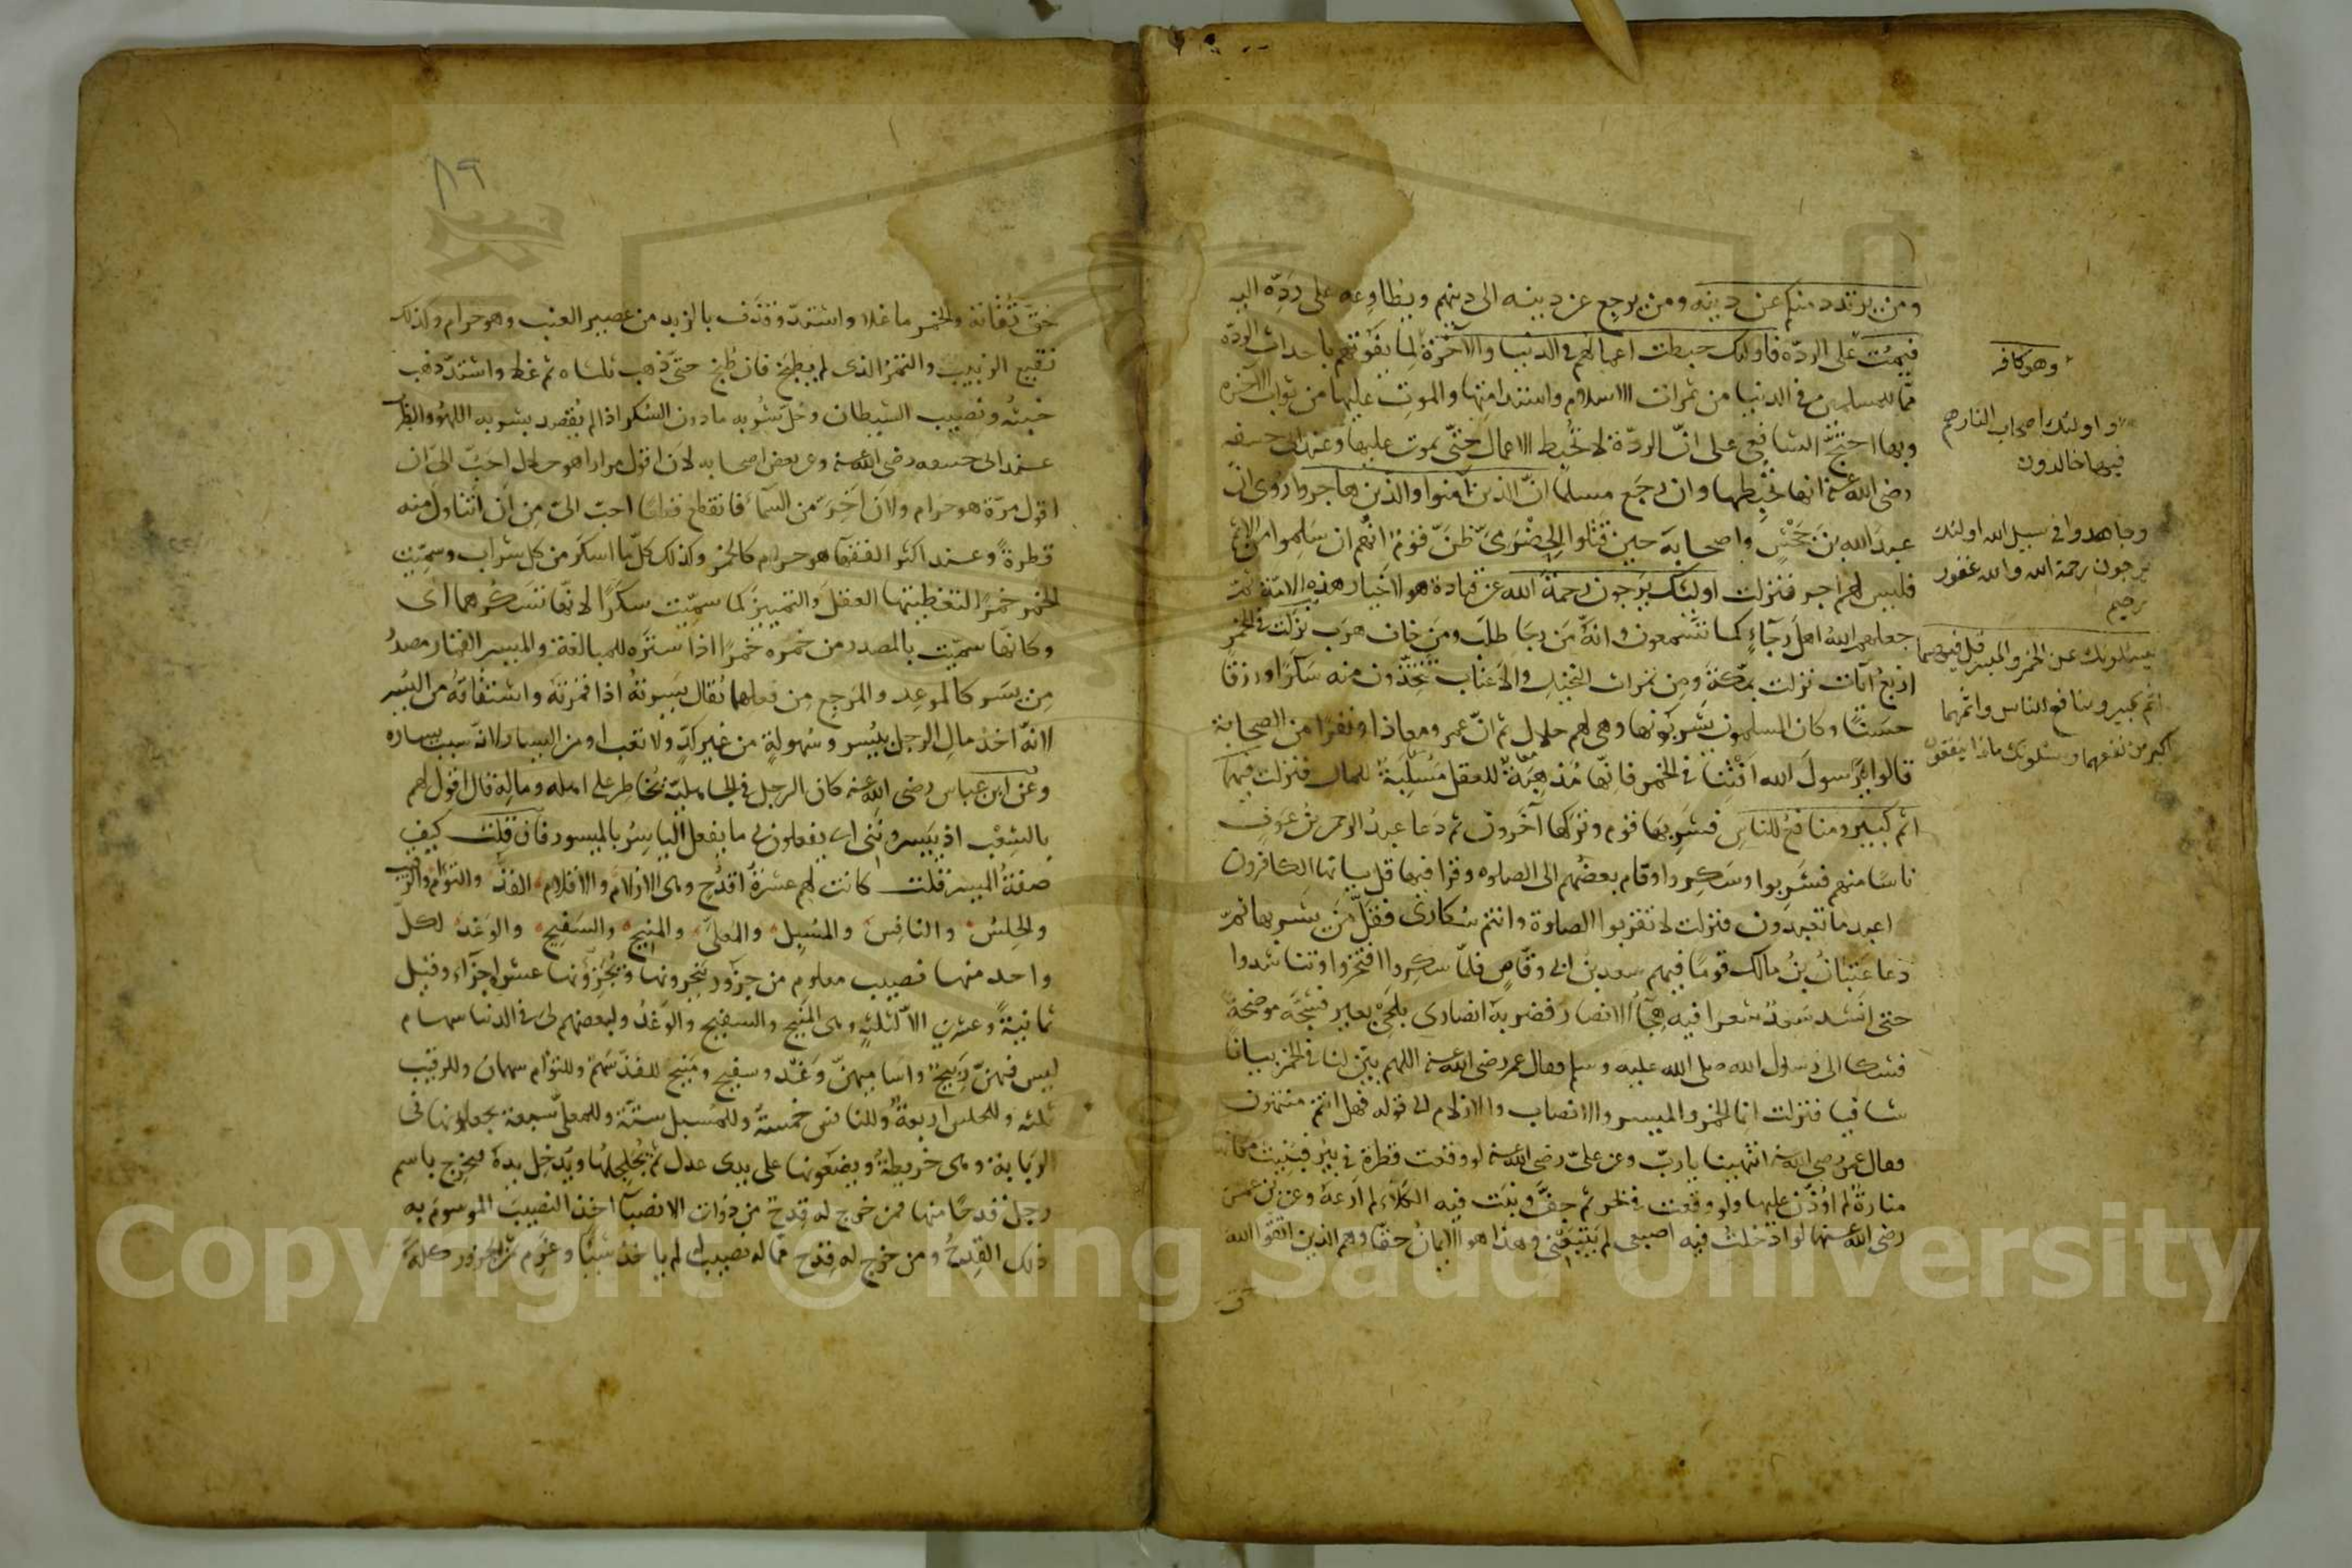 ومن يرتدد منكم عن دينه ومن يرجع عن دينه الى دينهم ويطاوعه على ردّه اليه
فيمُت على الردّه فاولئك حبطت اعمالهم في الدنيا والآخرة لِما يفوتهم باحداث الردّة
ممّا للمسلمين في الدنيا من ثمرات الاسلام واستدامتها والموت عليها من ثواب الآخرة
وبها احتجّ الشافعي على انّ الردّة لا تُحبط الاعمال حتّى يموت عليها وعند ابى حنيفه
رضى الله عنه انها تُحبطها وان رجَع مسلما انّ الذين آمنوا والذين هاجروا رُوى انّ
عبدَ الله بن جَحْش واصحابه حين قتلوا الحضرَمىّ ظنّ قوم انهم ان سَلِموا من الاثم
فليس لهم اجر فنزلت اولئك يرجون رحمة الله عن قتادة هولا خيار هذه الامّة ثمّ
جعلهم الله اهلَ رجآءٍ كما تسمعون وانه مَن رجَا طلبَ ومَن خاف هرَب نزلت في الخمر
اربع آيات نزلت بمكة ومِن ثمرات النخيل والاعناب تتخذون منه سَكَرًا ورزقًا
حسَنًا وكان المسلمون يشربونها وهى لهم حلال ثم انّ عمر ومعاذا ونفرًا من الصحابة
قالوا يا رسولَ الله افتنا في الخمر فانّها مُذهِبة للعقل مُسلِبة للمال فنزلت فيهما
اثم كبير ومنافع للناس فشَرِبها قوم وتركها آخرون ثم دَعا عبدُ الرحمن بن عوفٍ
ناسًا منهم فشربوا وسَكِروا وقام بعضُهم الى الصلوه وقرا فيها قل يـايها الكافرون
اعبد ما تعبدون فنزلت لا تقربوا الصلوة وانتم سُكارى فقلّ مَن يشربها ثمّ
دَعا عتبانُ بنُ مالك قومًا فيهم سعد بن ابى وقّاصٍ فلمّا سكِروا افتخروا وتناشدوا
حتى انشد سَعدٌ شعرا فيه هِجآُ الانصار فضربه انصارى بلَحْى بعير فشجّه موضحة
فشكا الى رسول الله صلى الله عليه وسلم فقال عمر رضى الله عنه اللهم بيّن لنا في الخمر بيانًا
شافيا فنزلت انما الخمر والميسر والانصاب والازلام الى قوله فهل انتم منتهون
فقال عمر رضى الله عنه انتهينا يا ربّ وعن علىّ رضى الله عنه لو وقعت قطرة في بئر فبُنيت مكانه
منارةٌ لم اؤذّن عليها ولو وقعت في بحر ثم جفّ ونبَت فيه الكَلأ لم ارعَهُ وعن ابن عمر
رضى الله عنهما لو ادخلتُ فيه اصبعى لم تتبعنى وهذا هو الايمانُ حقًّا وهم الذين اتقوا الله
وهو كافر
واولئك اصحاب النار هم
فيها خالدون
وجاهدوا في سبيل الله اولئك
يرجون رحمة الله والله غفور
رحيم
يسئلونك عن الخمر والميسر قل فيهما
اثم كبير ومنافع للناس واثمهما
اكبر من نفعهما ويسئلونك ماذا ينفقون
٨٩
حقّ تُقاته والخمر ما غلا واشتدّ وقذف بالزبد من عصير العنب وهو حرام وكذلك
نقيع الزبيب والتمر الذى لم يطبخ فان طُبخ حتّى ذهب ثلثاه ثم غلى واشتدّ ذهب
خبثه ونصيب الشيطان وحلّ شُربه ما دون السُكر اذا لم يُقصد بشربه اللهوُ والطرب
عند ابى حنيفه رضى الله عنه وعن بعض اصحابه لان اقول مرارا هو حلال احَبّ الىّ ان
اقول مرّة هو حرام ولان اخِرّ من السماء فاتقطع قطعًا احبّ الىّ مِن ان اتناول منه
قطرةً وعند اكثر الفقها هو حرام كالخمر وكذلك كلّ ما اسكر من كل شراب وسمّيت
الخمر خمرًا لتغطيتها العقلَ والتمييزَ كما سمّيت سكَرًا لانّها تسكرهما اى
وكانّها سمّيت بالمصدر من خمره خمرًا اذا ستره للمبالغة والميسر القمار مصدرُ
مِن يسَر كالموعِد والمرجِع من فعلهما يُقال يسَرتهُ اذا قمرته واشتقاقهُ من اليُسر
لانّه اخذ مالِ الرجل بيُسر وسُهولةٍ من غير كدّ ولا تعب او من اليسار لانّه سبب يساره
وعن ابن عباس رضى الله عنه كان الرجل في الجاهلية يُخاطر على اهله وماله قال اقول لهم
بالشِعْب اذ ييسروننى اى يفعلون بى ما يفعل الياسرُ بالميسور فان قلت كيف
صفةُ الميسر قلت كانت لهم عشرةُ اقدُح وهى الازلام والاقلام الفذّ والتوْام والرقيب
والحِلسُ والنافِس والمُسبِل والمعلّى والمنيح والسفِيح والوَغد لكلّ
واحد منها نصيب معلوم من جزور ينحرونها ويُجزّؤنها عشرة اجزآء وقيل
ثمانيةً وعشرين الا لثلثةٍ وهى المنيح والسفيح والوَغدُ ولبعضهم لىَ في الدنيا سهام
ليس فيهنّ ربيح واسَاميهنّ وَغدٌ وسفيح ومَنيح للفذّ سَهم وللتوْام سهمان وللرقيب
ثلثه وللحلس اربعةٌ وللنافس خمسةٌ وللمسبل ستّة وللمعلّى سبعة يجعلونها في
الرِبابة وهى خريطة ويضعونها على يدى عدل ثمّ يُجلجِلُها ويُدخِل يده فيخرج باسم
رجل رجل قدحًا منها فمن خرج له قِدح من ذوات الانصبآ اخذ النصيبَ الموسومَ به
ذلك القِدحُ ومن خرج له قِدح ممّا لا نصيب له لم ياخذ شيئًا وغرِم ثمن الجزور كله
Copyright © King Saud University